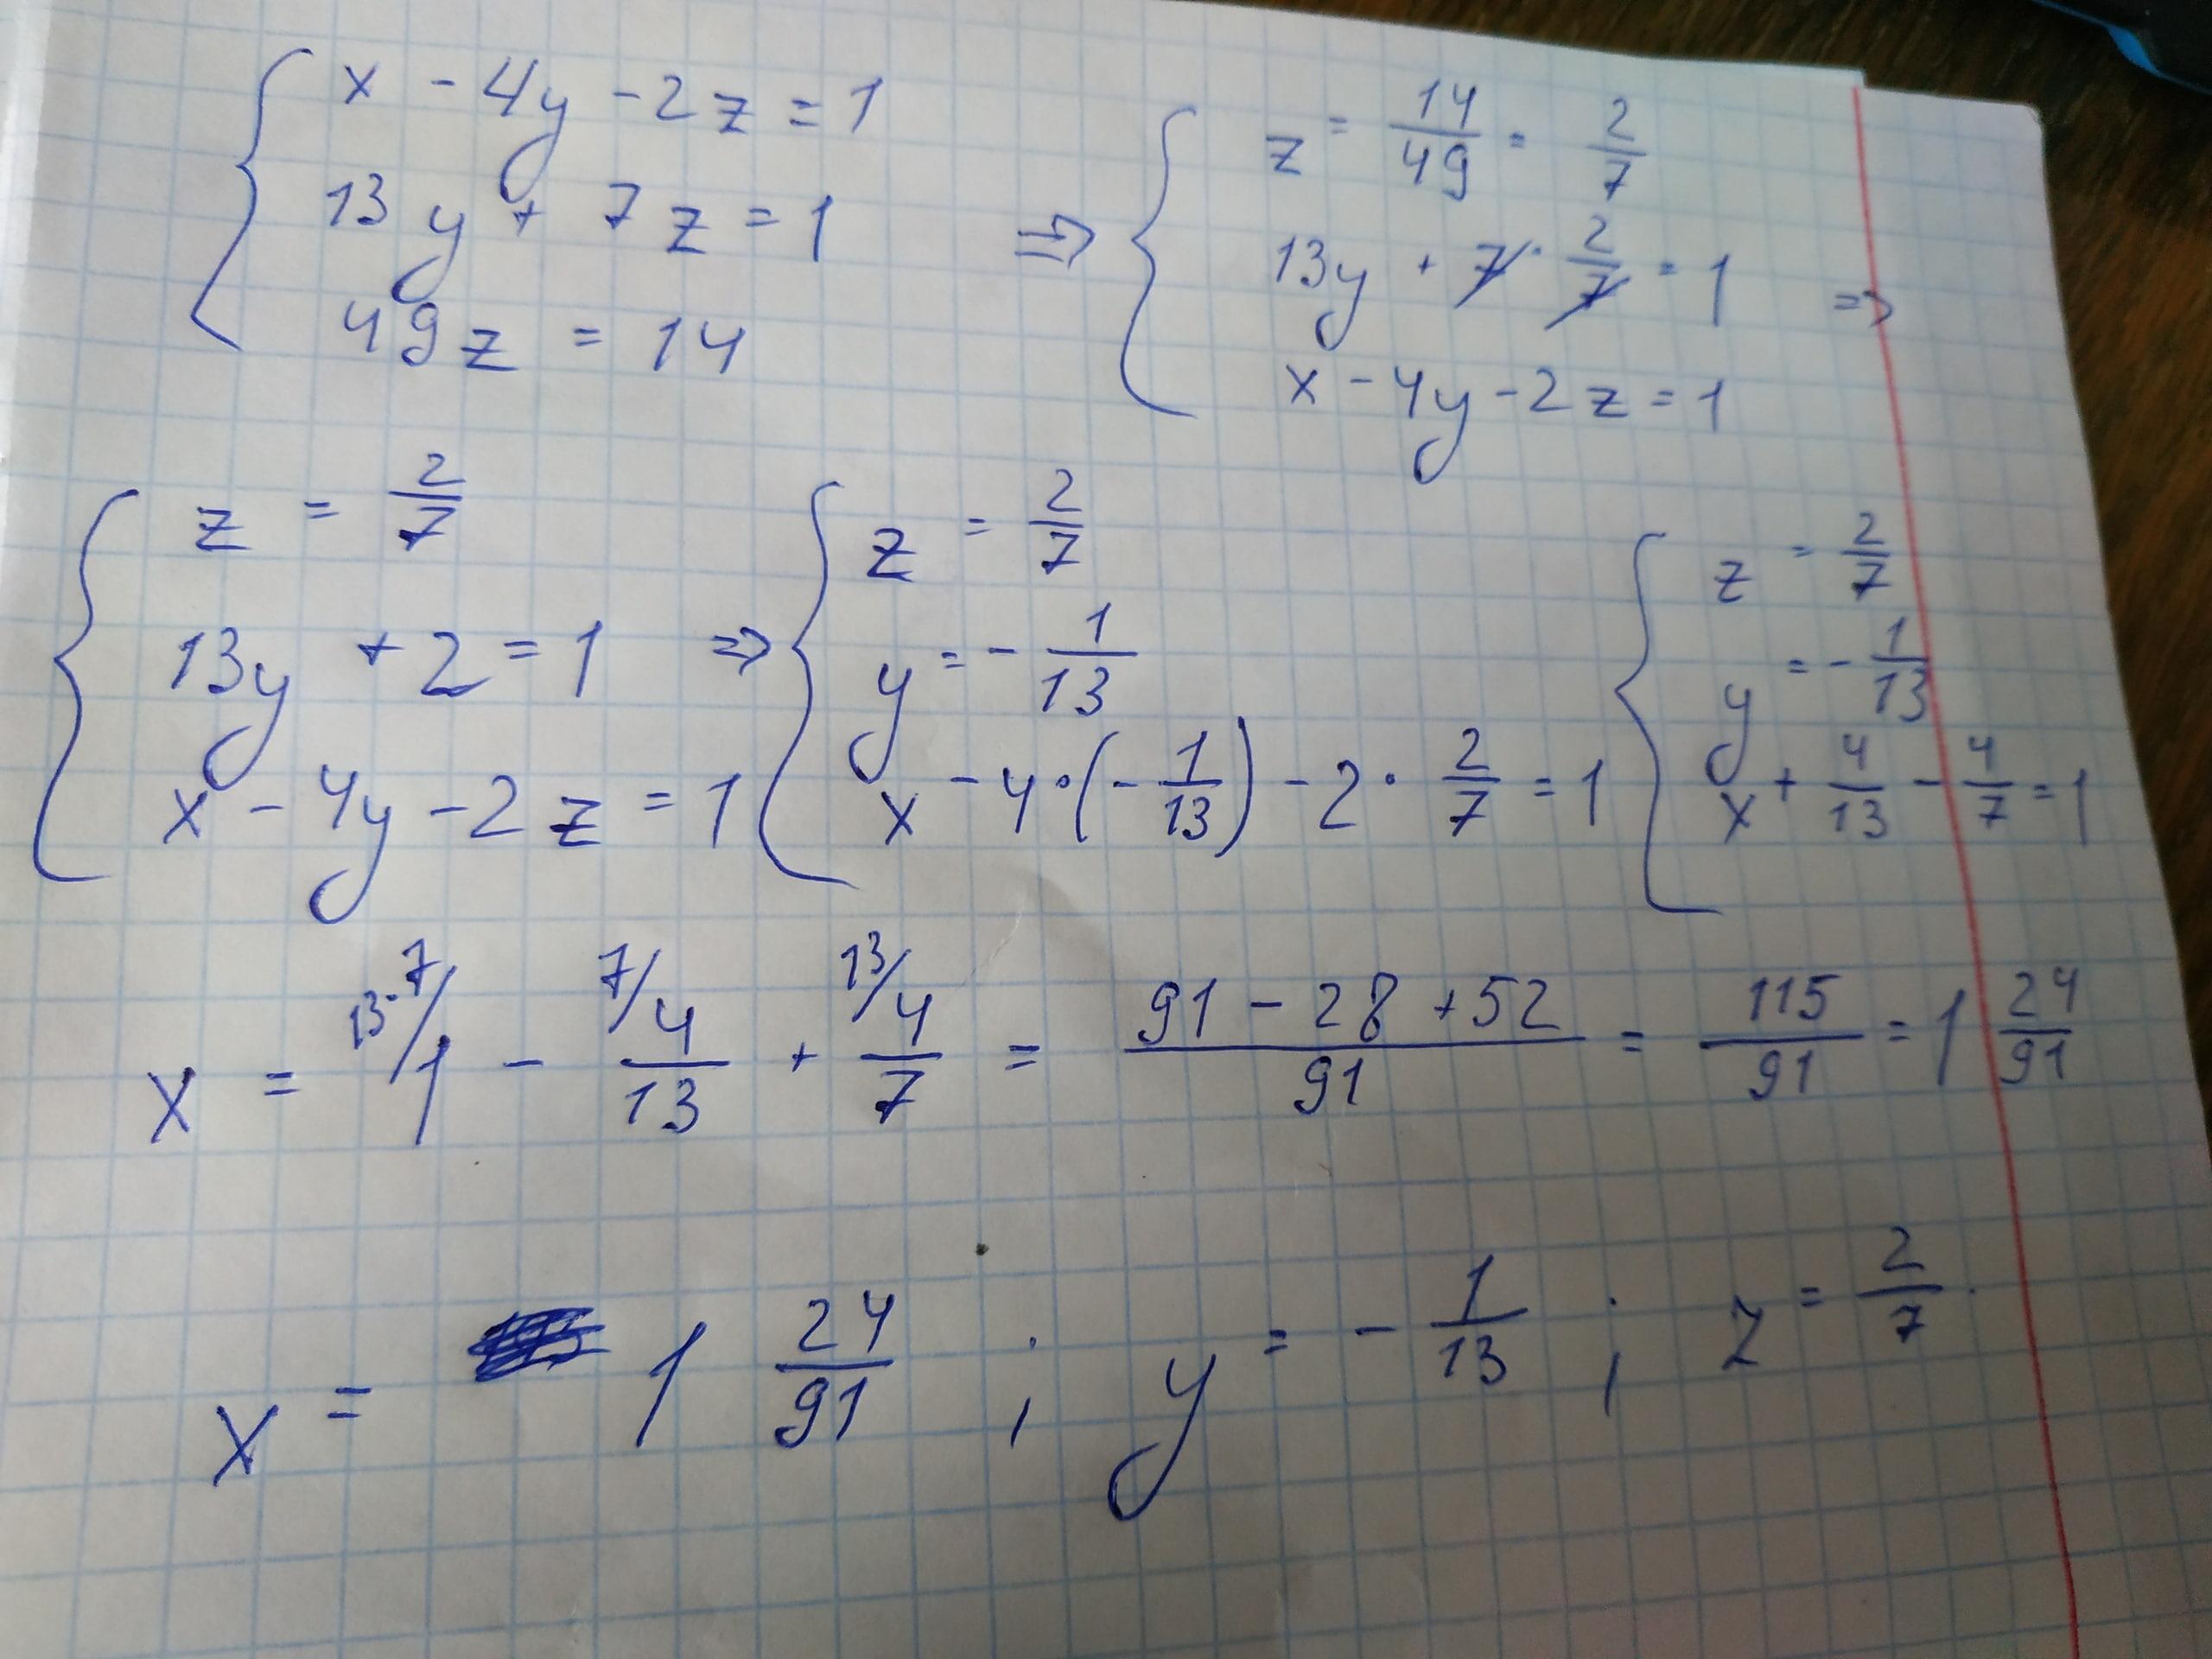 x - 4y - 2z = 1
13y + 7z = 1
49z = 14
⇒
z = 14/49 = 2/7
13y + 7 · 2/7 = 1
x - 4y - 2z = 1
⇒
z = 2/7
13y + 2 = 1
x - 4y - 2z = 1
⇒
z = 2/7
y = - 1/13
x - 4 · (- 1/13) - 2 · 2/7 = 1
z = 2/7
y = - 1/13
x + 4/13 - 4/7 = 1
x = 13·7/ 1 - 7/ 4/13 + 13/ 4/7 = (91 - 28 + 52)/91 = 115/91 = 1 24/91
x = 1 24/91 ; y = - 1/13 ; z = 2/7.